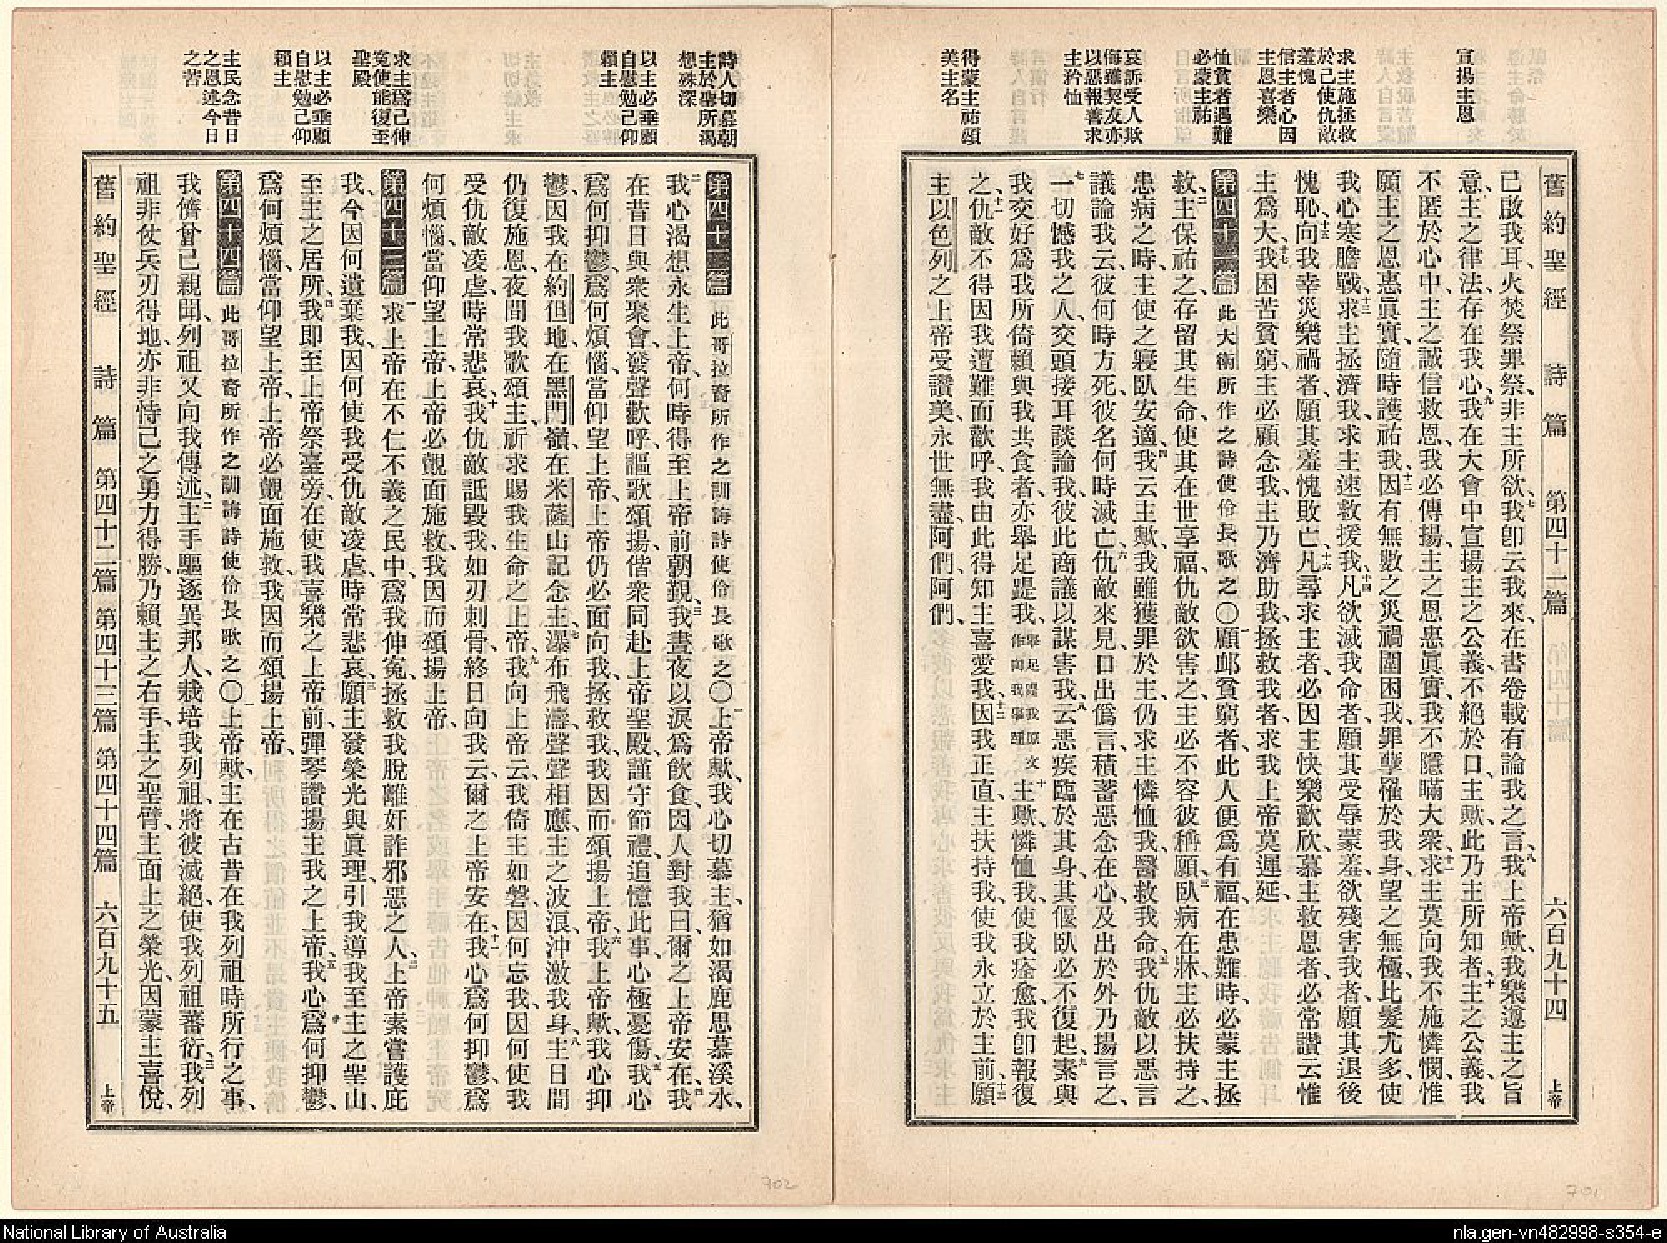 宣揚主恩
求主施拯救
於己使仇敵
羞愧
信主者心因
主恩喜樂
恤貧者遇難
必蒙主祐
哀訴受人欺
侮雖契友亦
以惡報善求
主矜恤
得蒙主祐頌
美主名
舊約聖經 詩篇 第四十一篇 六百九十四 上帝
己啟我耳火焚祭罪祭、非主所欲、七我卽云我來、在書卷載有論我之言、八我上帝歟、我樂遵主之旨
意、主之律法、存在我心、九我在大會中宣揚主之公義、不絕於口、主歟、此乃主所知者、十主之公義、我
不匿於心中、主之誠信救恩、我必傳揚、主之恩惠眞實、我不隱瞞大衆、十一求主莫向我不施憐憫、惟
願主之恩惠眞實、隨時護祐我、十二因有無數之災禍圍困我、我罪孽罹於我身、望之無極、比髮尤多、使
我心寒膽戰、十三求主拯濟我、求主速救援我、十四凡欲滅我命者、願其受辱蒙羞、欲殘害我者、願其退後
愧恥、十五向我幸災樂禍者、願其羞愧敗亡、十六凡尋求主者、必因主快樂歡欣、慕主救恩者、必常讚云、惟
主爲大、十七我困苦貧窮、主必顧念我、主乃濟助我拯救我者、求我上帝莫遲延、
第四十一篇 此大衛所作之詩使伶長歌之〇一願卹貧窮者、此人便爲有福、在患難時、必蒙主拯
救、二主保祐之、存留其生命、使其在世享福、仇敵欲害之、主必不容彼稱願、三臥病在牀、主必扶持之、
患病之時、主使之寢臥安適、四我云、主歟、我雖獲罪於主、仍求主憐恤我、醫救我命、五我仇敵以惡言
議論我云、彼何時方死、彼名何時滅亡、六仇敵來見、口出僞言、積蓄惡念在心、及出於外、乃揚言之、
七一切憾我之人、交頭接耳談論我、彼此商議以謀害我、八云、惡疾臨於其身、其偃臥必不復起、九素與
我交好爲我所倚賴、與我共食者、亦舉足踶我、十主歟、憐恤我、使我痊愈、我卽報復
之、十一仇敵不得因我遭難而歡呼、我由此得知主喜愛我、十二因我正直、主扶持我、使我永立於主前、十三願
主以色列之上帝受讚美、永世無盡、阿們、阿們、
詩人切慕朝
主於聖所渴
想殊深
以主必垂顧
自慰勉己仰
賴主
求主爲己伸
冤使能復至
聖殿
以主必垂顧
自慰勉己仰
賴主
主民念昔日
之恩述今日
之苦
第四十二篇 此哥拉裔所作之訓誨詩使伶長歌之〇一上帝歟、我心切慕主、猶如渴鹿思慕溪水、
二我心渴想永生上帝、何時得至上帝前朝覲、三我晝夜以淚爲飲食、因人對我曰、爾之上帝安在、四我
在昔日與衆聚會、發聲歡呼、謳歌頌揚、偕衆同赴上帝聖殿、謹守節禮、追憶此事、心極憂傷、五我心
爲何抑鬱、爲何煩惱、當仰望上帝、上帝仍必面向我拯救我、我因而頌揚上帝、六我上帝歟、我心抑
鬱、因我在約但地、在黑門嶺、在米薩山、記念主、七瀑布飛濤、聲聲相應、主之波浪、沖激我身、八主日間
仍復施恩、夜間我歌頌主、祈求賜我生命之上帝、九我向上帝云、我倚主如磐、因何忘我、因何使我
受仇敵凌虐、時常悲哀、十我仇敵詆毀我、如刃刺骨、終日向我云、爾之上帝安在、十一我心爲何抑鬱、爲
何煩惱、當仰望上帝、上帝必覿面施救、我因而頌揚上帝、
第四十三篇 一求上帝在不仁不義之民中、爲我伸冤、拯救我脫離奸詐邪惡之人、二上帝素嘗護庇
我、今因何遺棄我、因何使我受仇敵凌虐、時常悲哀、三願主發榮光與眞理、引我導我、至主之聖山、
至主之居所、四我卽至上帝祭臺旁、在使我喜樂之上帝前、彈琴讚揚主我之上帝、五我心爲何抑鬱、
爲何煩惱、當仰望上帝、上帝必覿面施救、我因而頌揚上帝、
第四十四篇 此哥拉裔所作之訓誨詩使伶長歌之〇一上帝歟、主在古昔在我列祖時所行之事、
我儕曾已親聞、列祖又向我傳述、二主手驅逐異邦人、栽培我列祖、將彼滅絕、使我列祖蕃衍、三我列
祖非仗兵刃得地、亦非恃己之勇力得勝、乃賴主之右手、主之聖臂、主面上之榮光、因蒙主喜悅、
舊約聖經 詩篇 第四十二篇 第四十三篇 第四十四篇 六百九十五 上帝
702
701
National Library of Australia
nla.gen-vn482998-s354-e